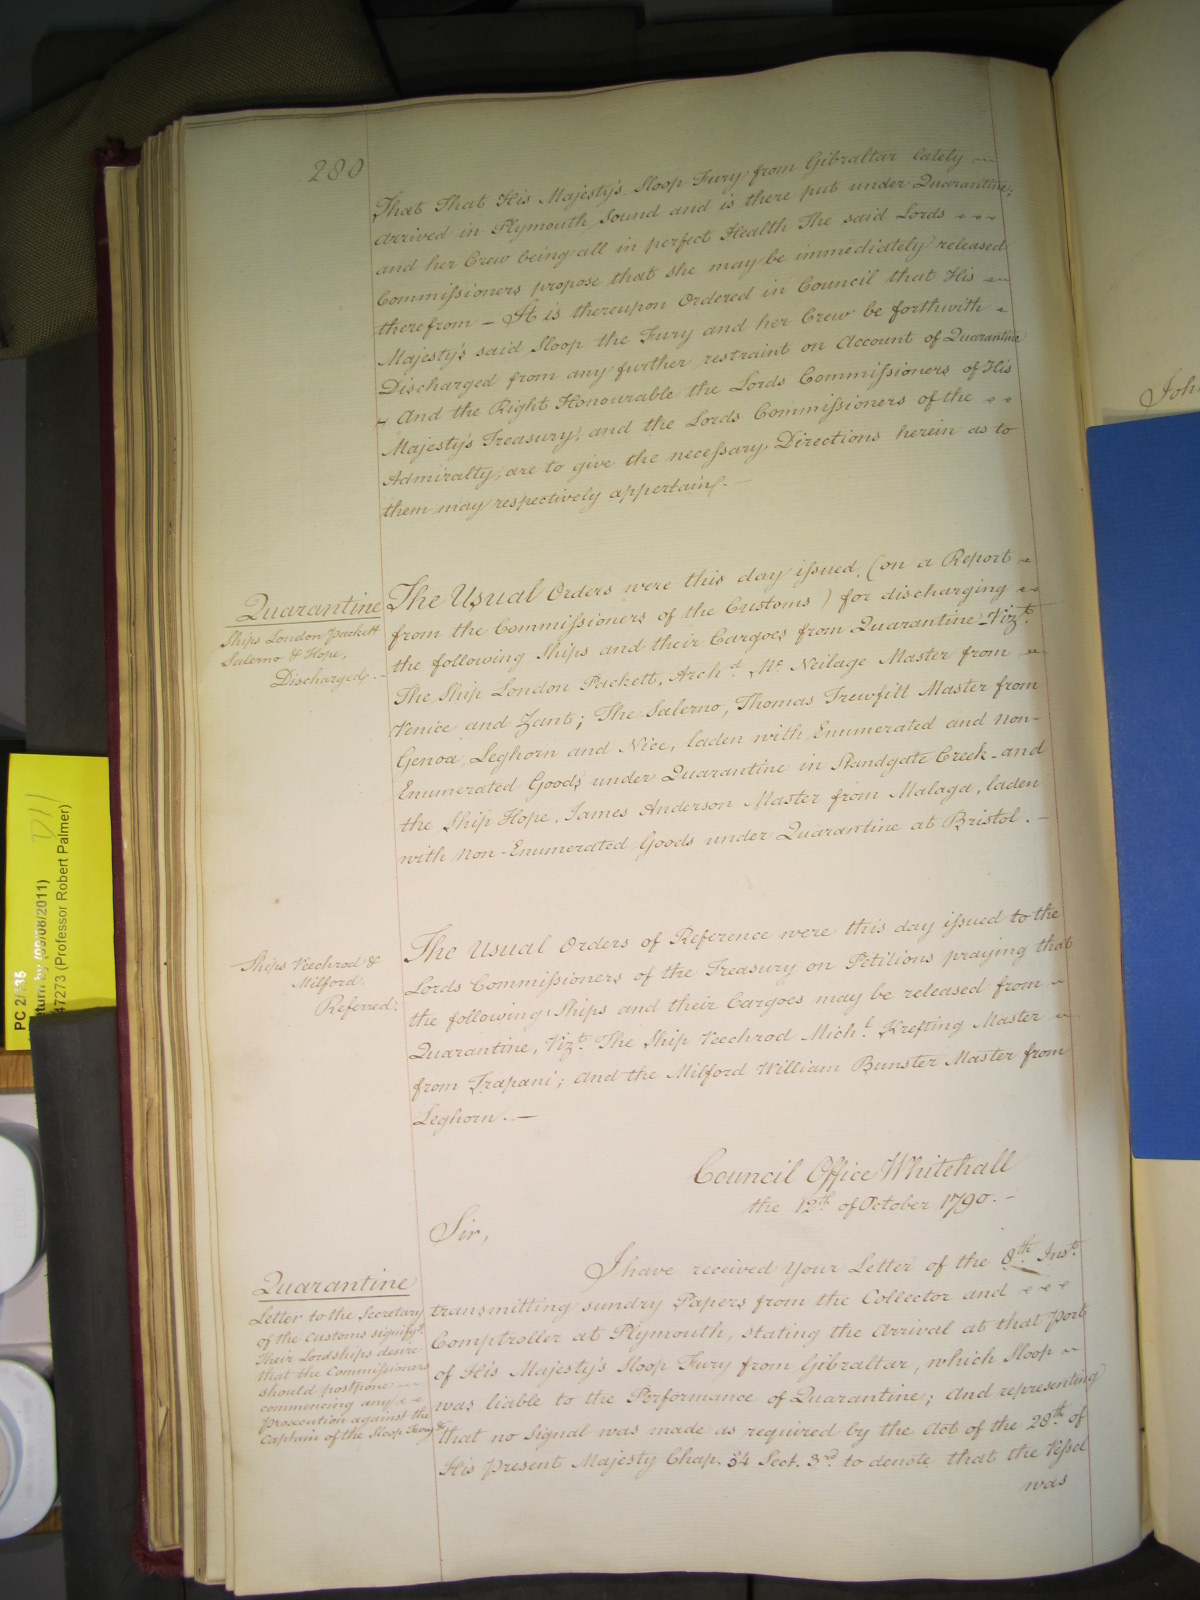 280
That That His Majesty's Sloop Fury from Gibraltar lately
arrived in Plymouth Sound and is there put under Quarantine;
and her Crew being all in perfect Health The said Lords
Commissioners propose that she may be immediately released
therefrom – It is thereupon Ordered in Council that His
Majesty's said Sloop the Fury and her Crew be forthwith
Discharged from any further restraint on Account of Quarantine
– And the Right Honourable the Lords Commissioners of His
Majesty's Treasury, and the Lords Commissioners of the
Admiralty, are to give the necessary Directions herein as to
them may respectively appertain. –
Quarantine
Ships London Packett
Salerno & Hope,
Discharged. -
The Usual Orders were this day issued, (on a Report
from the Commissioners of the Customs) for discharging
the following Ships and their Cargoes from Quarantine Vizt.
The Ship London Packett, Archd. Mc Neilage Master from
Venice and Zant; The Salerno, Thomas Trewfitt Master from
Genoa, Leghorn and Nice, laden with Enumerated and non-
Enumerated Goods under Quarantine in Standgate Creek - and
the Ship Hope, James Anderson Master from Malaga, laden
with Non-Enumerated Goods under Quarantine at Bristol. –
Ships Veechrod &
Milford.
Referred.
The Usual Orders of Reference were this day issued to the
Lords Commissioners of the Treasury on Petitions praying that
the following Ships and their Cargoes may be released from
Quarantine, Vizt. The Ship Veechrod Michl. Krefting Master
from Trapani; and the Milford William Bunster Master from
Leghorn. –
Council Office Whitehall
the 12th of October 1790. –
Sir,
Quarantine
Letter to the Secretary
of the Customs signifyg.
Their Lordships desire
that the Commissioners
should postpone
commencing any
Prosecution against the
Captain of the Sloop Fury &c
I have received Your Letter of the 8th Inst.
transmitting sundry Papers from the Collector and
Comptroller at Plymouth, stating the Arrival at that Port
of His Majesty's Sloop Fury from Gibraltar, which Sloop
was liable to the Performance of Quarantine; and representing
that no Signal was made as required by the Act of the 28th of
His present Majesty Chap. 34 Sect. 3rd to denote that the Vessel
was
John
PC 2/135
turn by (09/08/2011)
47273 (Professor Robert Palmer)